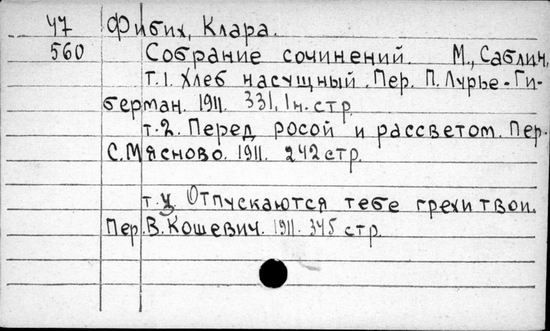 47 Фибих, Клара.
560 Собрание сочинений. М., Саблин,
т.1. Хлеб насущный. Пер. П. Лурье-Ги-
берман. 1911. 331, 1н. стр.
т.2. Перед росой и рассветом. Пер.
С. Мясново. 1911. 242 стр.
т. 3. Отпускаются тебе грехи твои.
Пер. В. Кошевич. 1911. 345 стр.